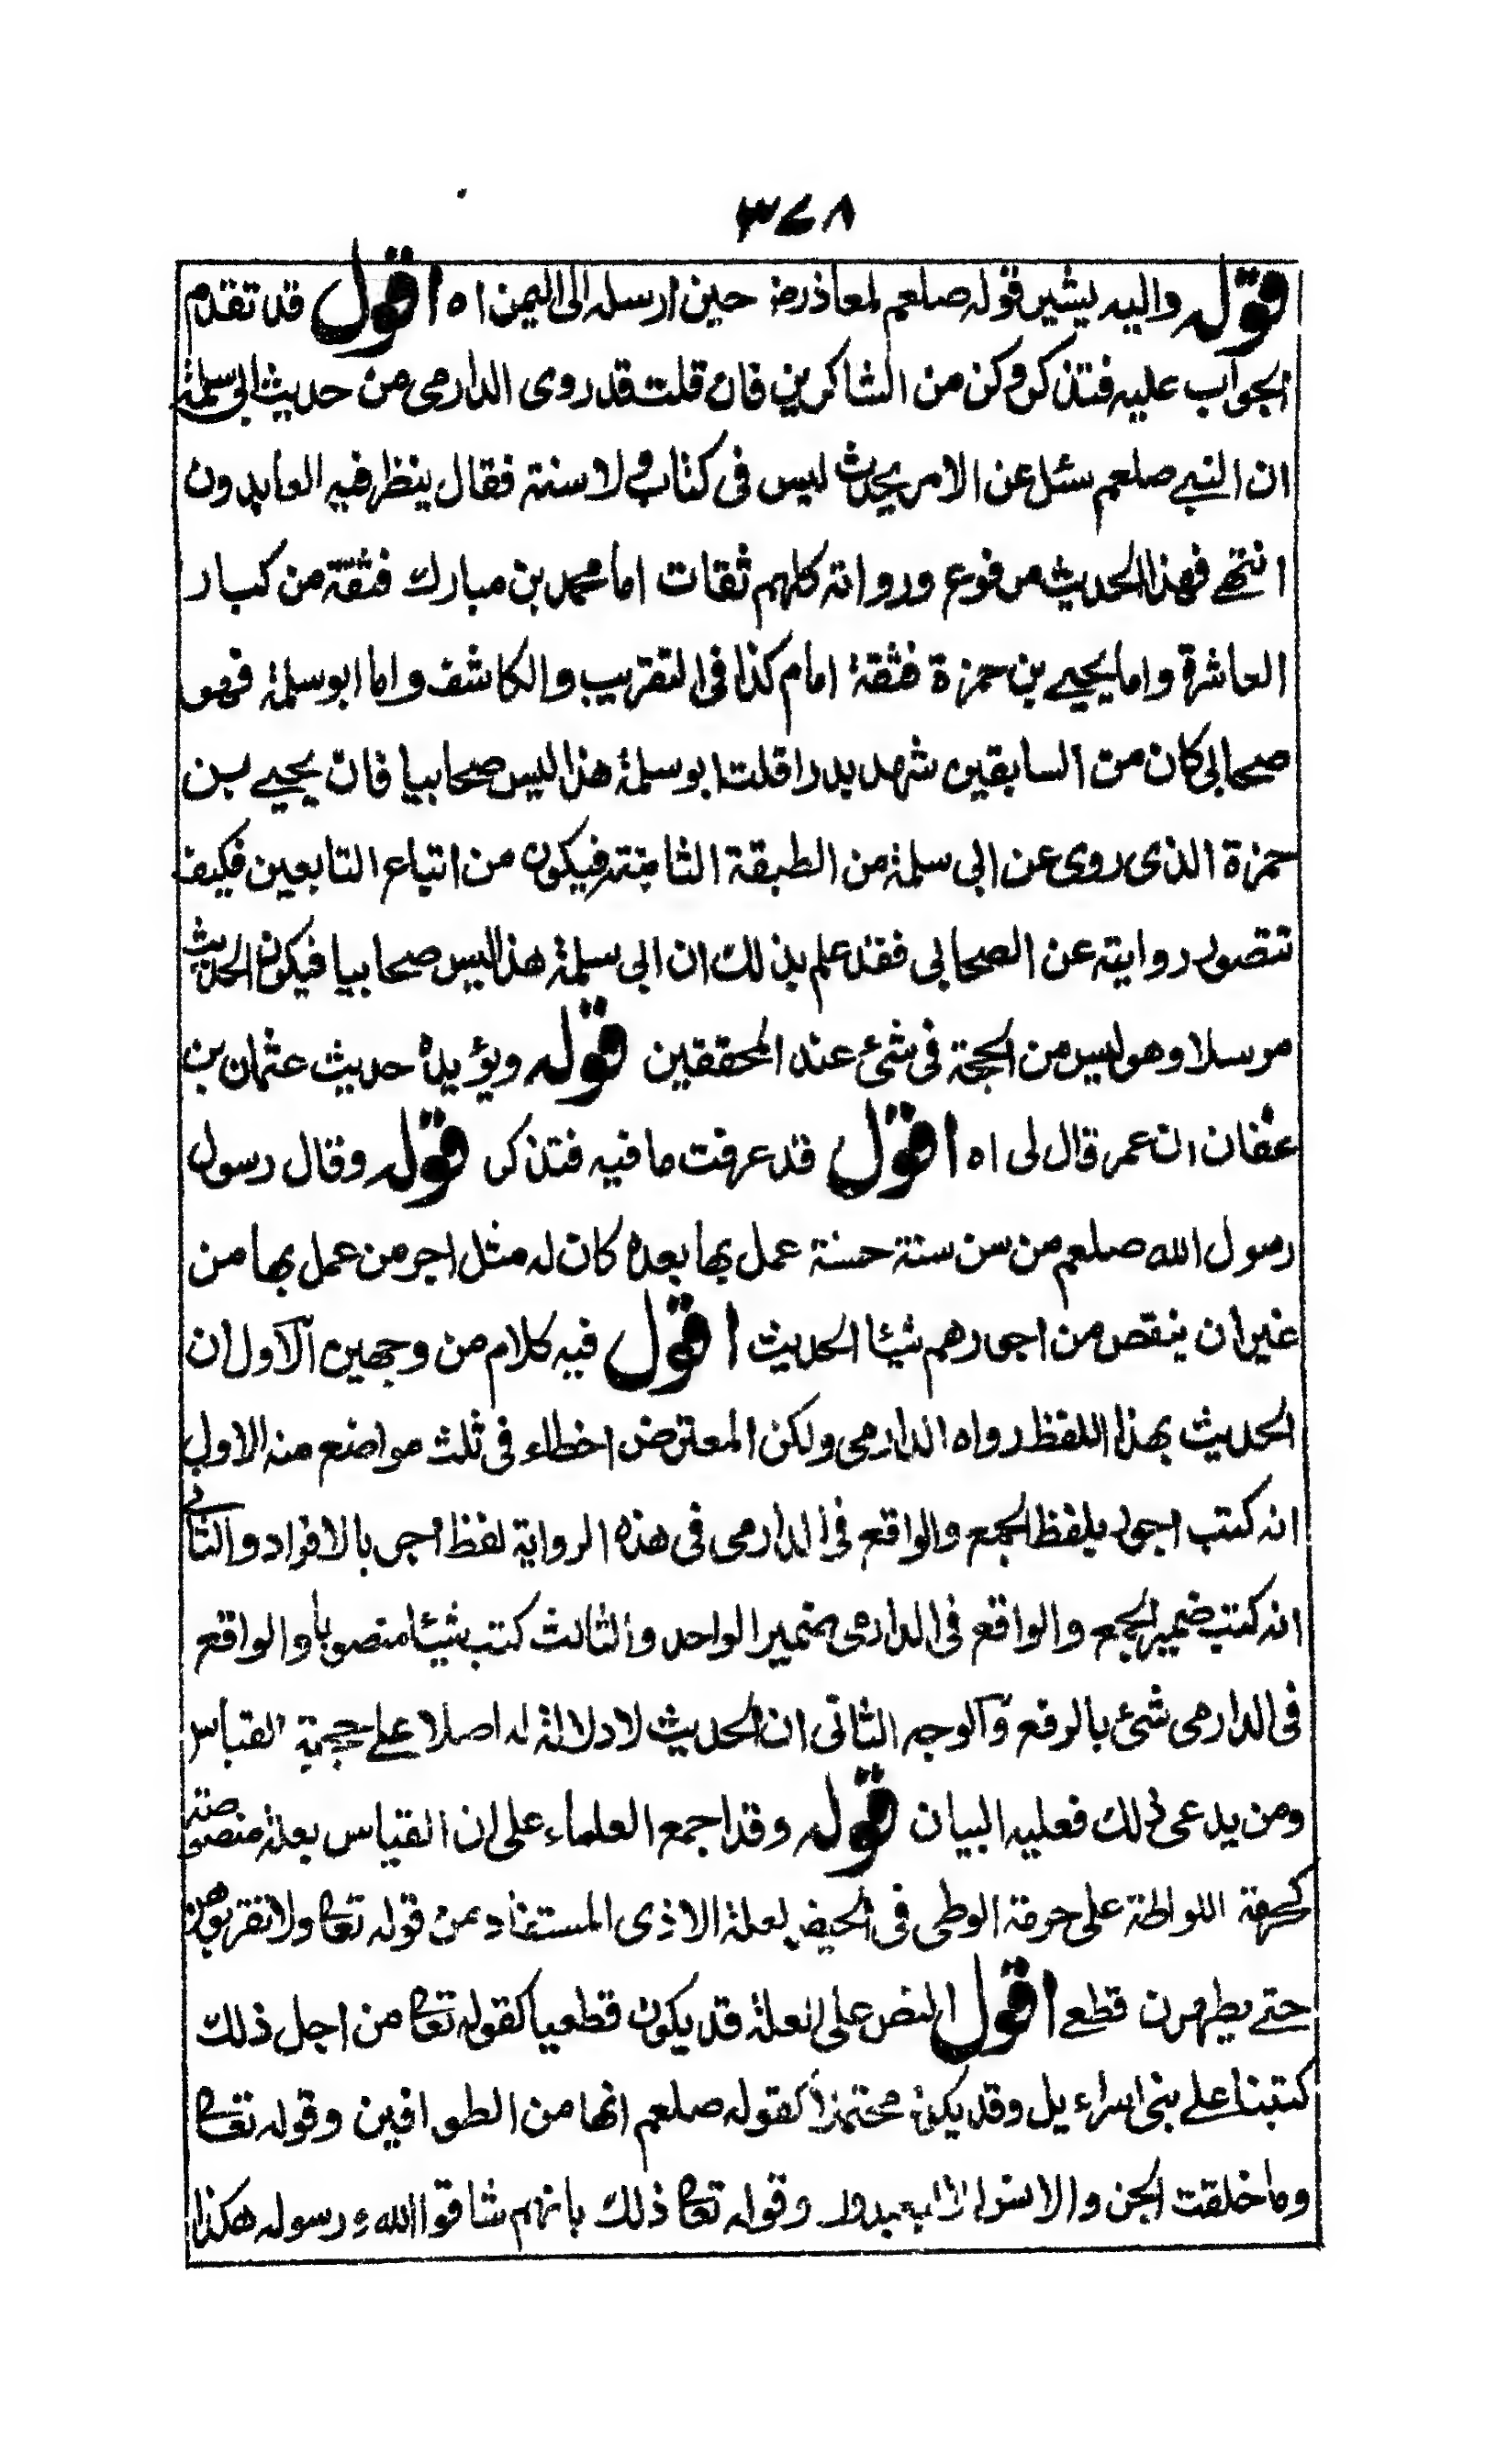 ۳۷۸
قوله واليه يشير قوله صلعم لمعاذ رض حين ارسله الى اليمن اه اقول قد تقدم
الجواب عليه فتذكر وكن من الشاكرين فان قلت قد روى الدارمى من حديث ابى سلمة
ان النبے صلعم سئل عن الامر يحدث ليس فى كتاب ولا سنة فقال ينظر فيه العابدون
انتهے فهذا الحديث مرفوع ورواته كلهم ثقات اما محمد بن مبارك فثقة من كبار
العاشرة واما يحيے بن حمزة فثقة امام كذا فى التقريب والكاشف واما ابو سلمة فهو
صحابى كان من السابقين شهد بدرا قلت ابو سلمة هذا ليس صحابيا فان يحيے بن
حمزة الذى روى عن ابى سلمة من الطبقة الثامنة فيكون من اتباع التابعين فكيف
تتصور روايته عن الصحابى فقد علم بذلك ان ابى سلمة هذا ليس صحابيا فيكون الحديث
مرسلا وهو ليس من الحجة فى شئ عند المحققين قوله ويؤيده حديث عثمان بن
عفان ان عمر قال لى اه اقول قد عرفت ما فيه فتذكر قوله وقال رسول
رسول الله صلعم من سن سنة حسنة عمل بها بعده كان له مثل اجر من عمل بها من
غير ان ينقص من اجورهم شيئا الحديث اقول فيه كلام من وجهين الآول ان
الحديث بهذا اللفظ رواه الدارمى ولكن المعترض اخطاء فى ثلث مواضع منه الاول
انه كتب اجور بلفظ الجمع والواقع فى الدارمى فى هذه الرواية لفظ اجر بالافراد والثانے
انه كتب ضمير الجمع والواقع فى الدارمى ضمير الواحد والثالث كتب شيئا منصوبا والواقع
فى الدارمى شئ بالرفع وآلوجه الثانى ان الحديث لا دلالة له اصلا علے حجية القياس
ومن يدعى ذلك فعليه البيان قوله وقد اجمع العلماء على ان القياس بعلة منصوصة
كحرمة اللواطة على حرمة الوطى فى الحيض لعلة الاذى المستفاد من قوله تعا ولا تقربوهن
حتے يطهرن قطع اقول النص على العلة قد يكون قطعيا كقوله تعا من اجل ذلك
كتبنا علے بنى اسراءيل وقد يكون محتملا كقوله صلعم انها من الطوافين وقوله تعا
وما خلقت الجن والانس الا ليعبدون وقوله تعا ذلك بانهم شاقوا الله ورسوله هكذا